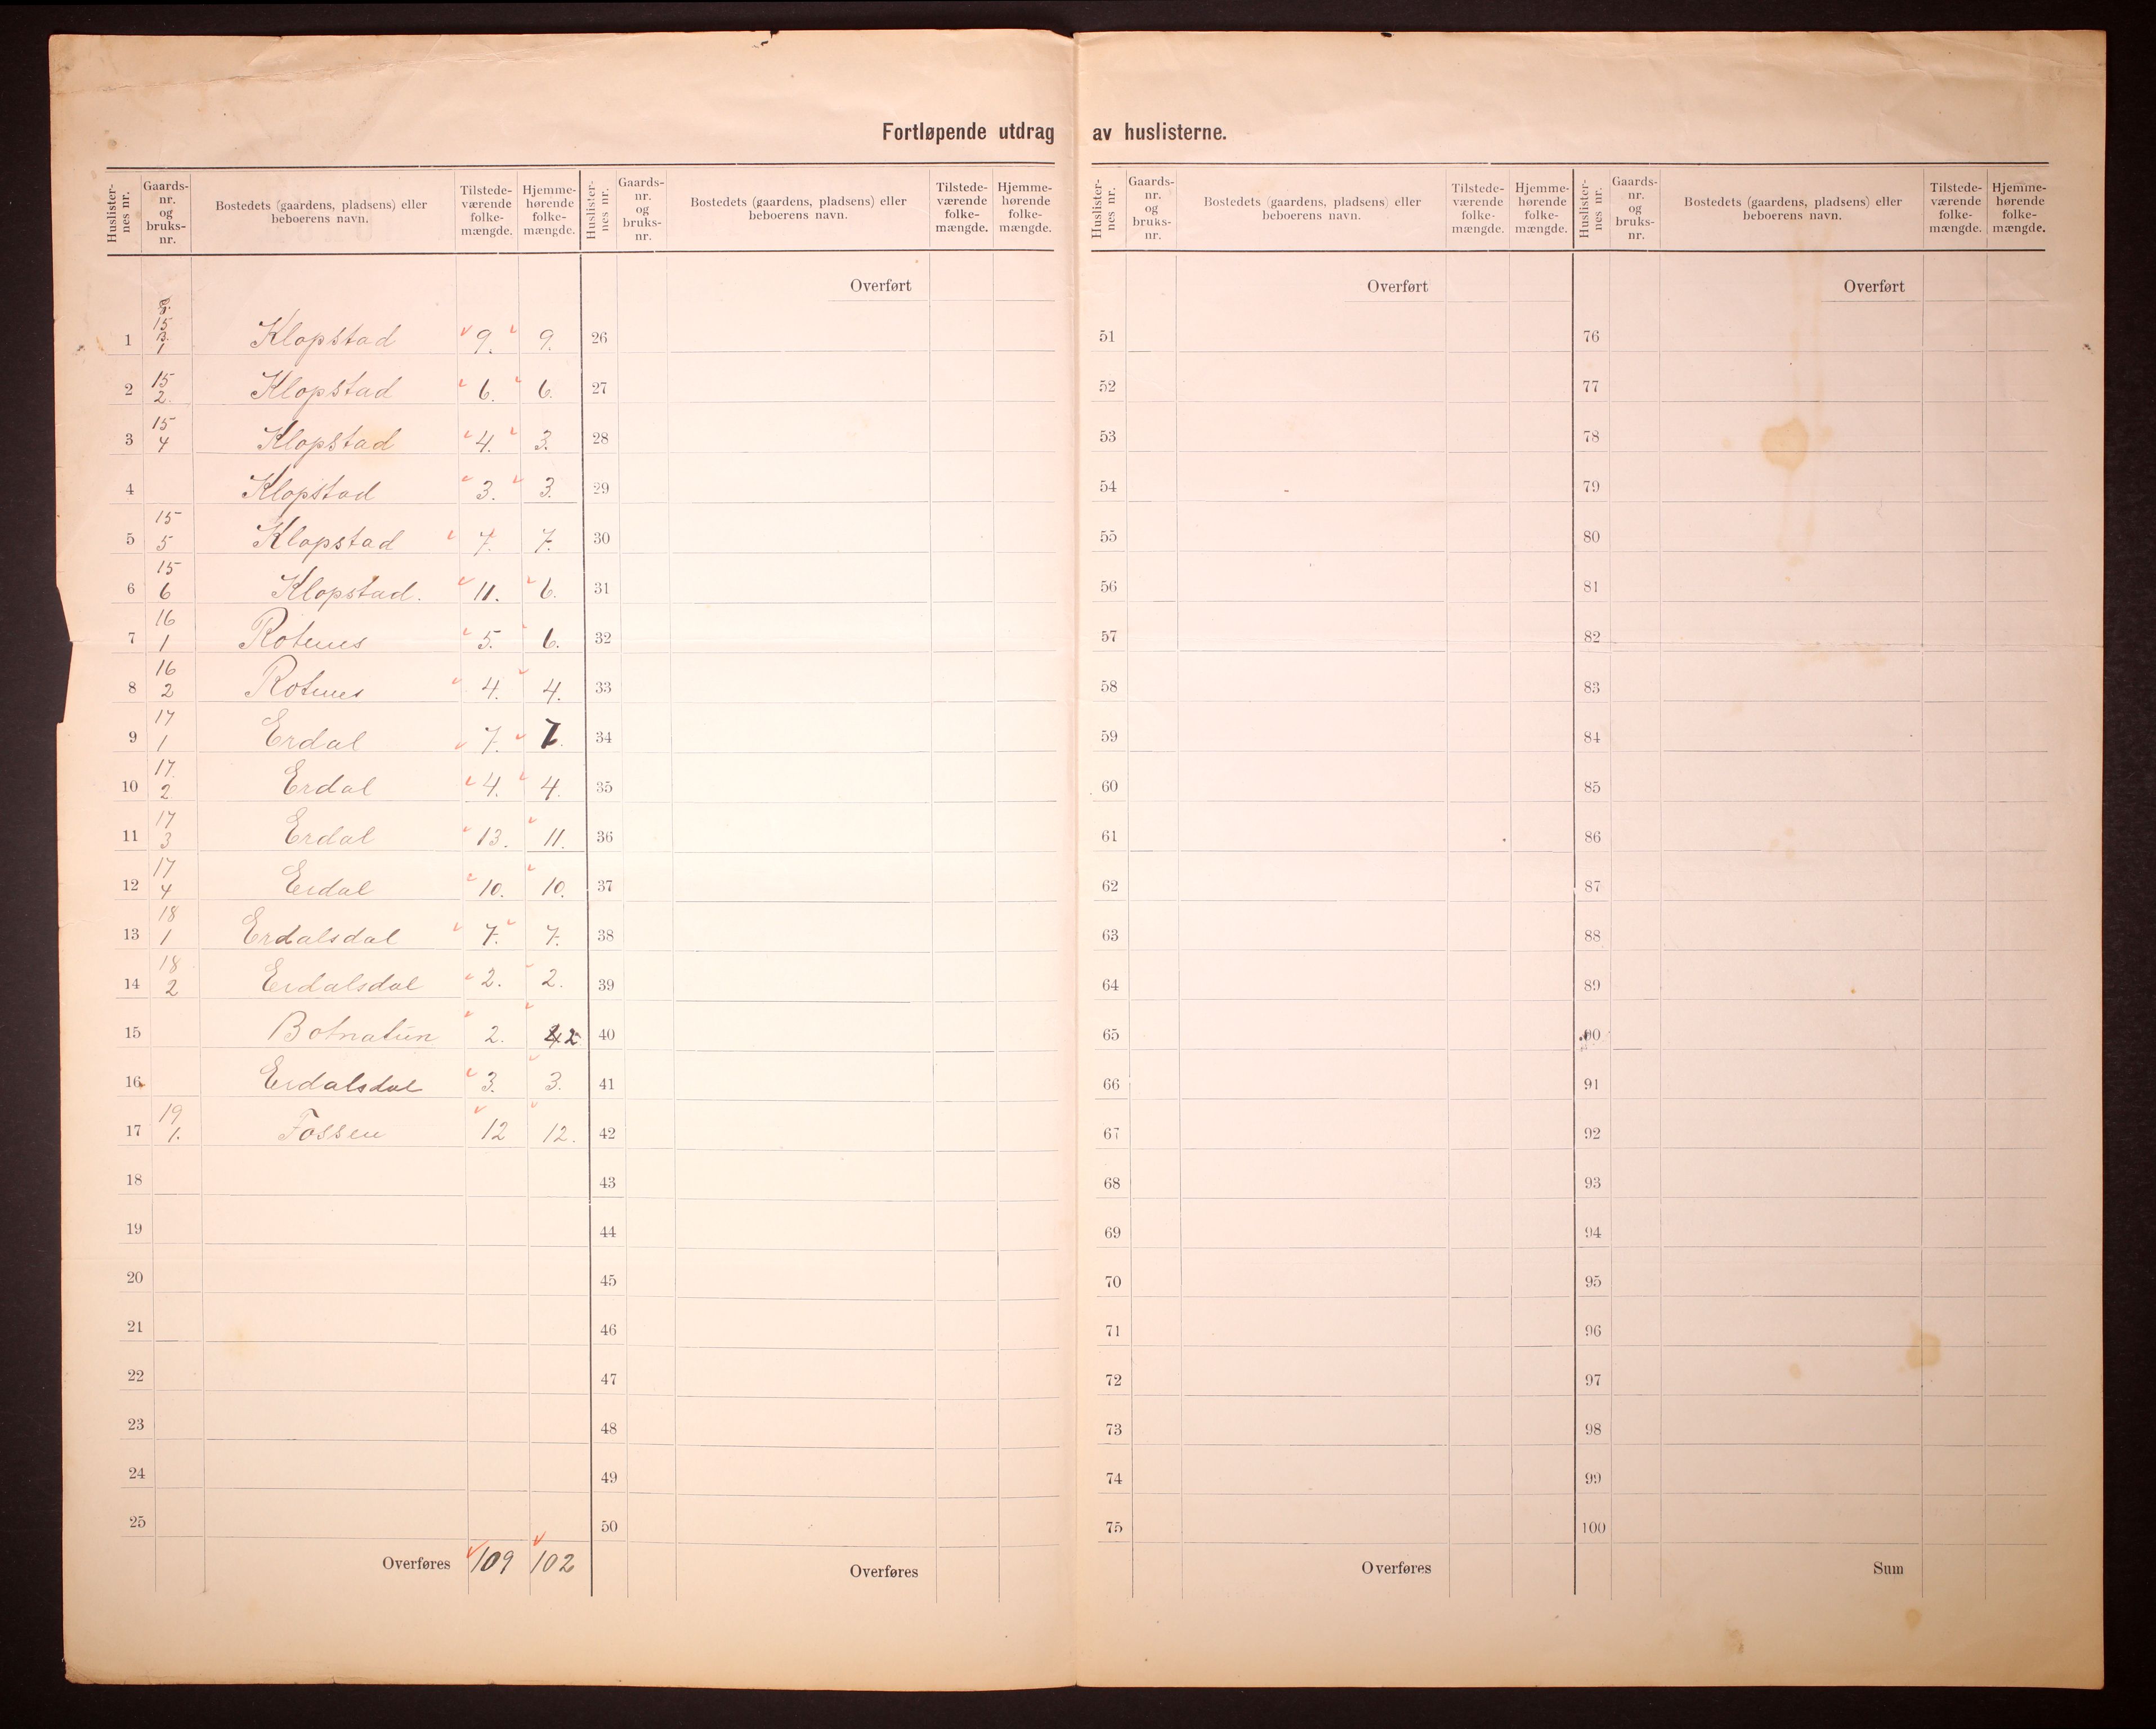 Fortløpende utdrag av huslisterne.
Huslister-nes nr. | Gaards-nr. og bruks-nr. | Bostedets (gaardens, pladsens) eller beboerens navn. | Tilstede-værende folke-mængde. | Hjemme-hørende folke-mængde.
Huslister-nes nr. | Gaards-nr. og bruks-nr. | Bostedets (gaardens, pladsens) eller beboerens navn. | Tilstede-værende folke-mængde. | Hjemme-hørende folke-mængde.
Huslister-nes nr. | Gaards-nr. og bruks-nr. | Bostedets (gaardens, pladsens) eller beboerens navn. | Tilstede-værende folke-mængde. | Hjemme-hørende folke-mængde.
Huslister-nes nr. | Gaards-nr. og bruks-nr. | Bostedets (gaardens, pladsens) eller beboerens navn. | Tilstede-værende folke-mængde. | Hjemme-hørende folke-mængde.
Overført Overført Overført
1 G. 15 B. 1 Klopstad 9. 9. 26 51 76
2 15 2. Klopstad 6. 6. 27 52 77
3 15 4 Klopstad 4. 3. 28 53 78
4 Klopstad 3. 3. 29 54 79
5 15 5 Klopstad 7. 7. 30 55 80
6 15 6 Klopstad. 11. 6. 31 56 81
7 16 1 Rotenes 5. 6. 32 57 82
8 16 2 Rotnes 4. 4. 33 58 83
9 17 1 Erdal 7. 7. 34 59 84
10 17. 2 Erdal 4. 4. 35 60 85
11 17 3 Erdal 13. 11. 36 61 86
12 17 4 Erdal 10. 10. 37 62 87
13 18 1 Erdalsdal 7. 7. 38 63 88
14 18 2 Erdalsdal 2. 2. 39 64 89
15 Botnatun 2. 2 40 65 90
16 Erdalsdal 3. 3. 41 66 91
17 19 1. Fossen 12 12. 42 67 92
18 43 68 93
19 44 69 94
20 45 70 95
21 46 71 96
22 47 72 97
23 48 73 98
24 49 74 99
25 50 75 100
Overføres 109 102 Overføres Overføres Sum